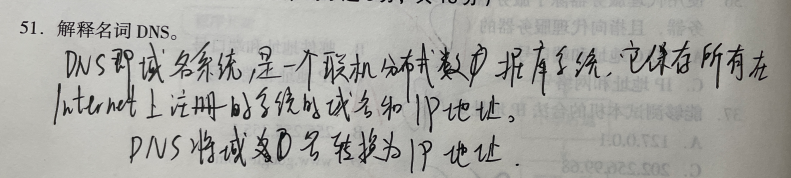 51. 解释名词 DNS。
DNS即域名系统,是一个联机分布式数据库系统,它保存所有在
Internet上注册的系统的域名和IP地址。
DNS将域名转换为IP地址.